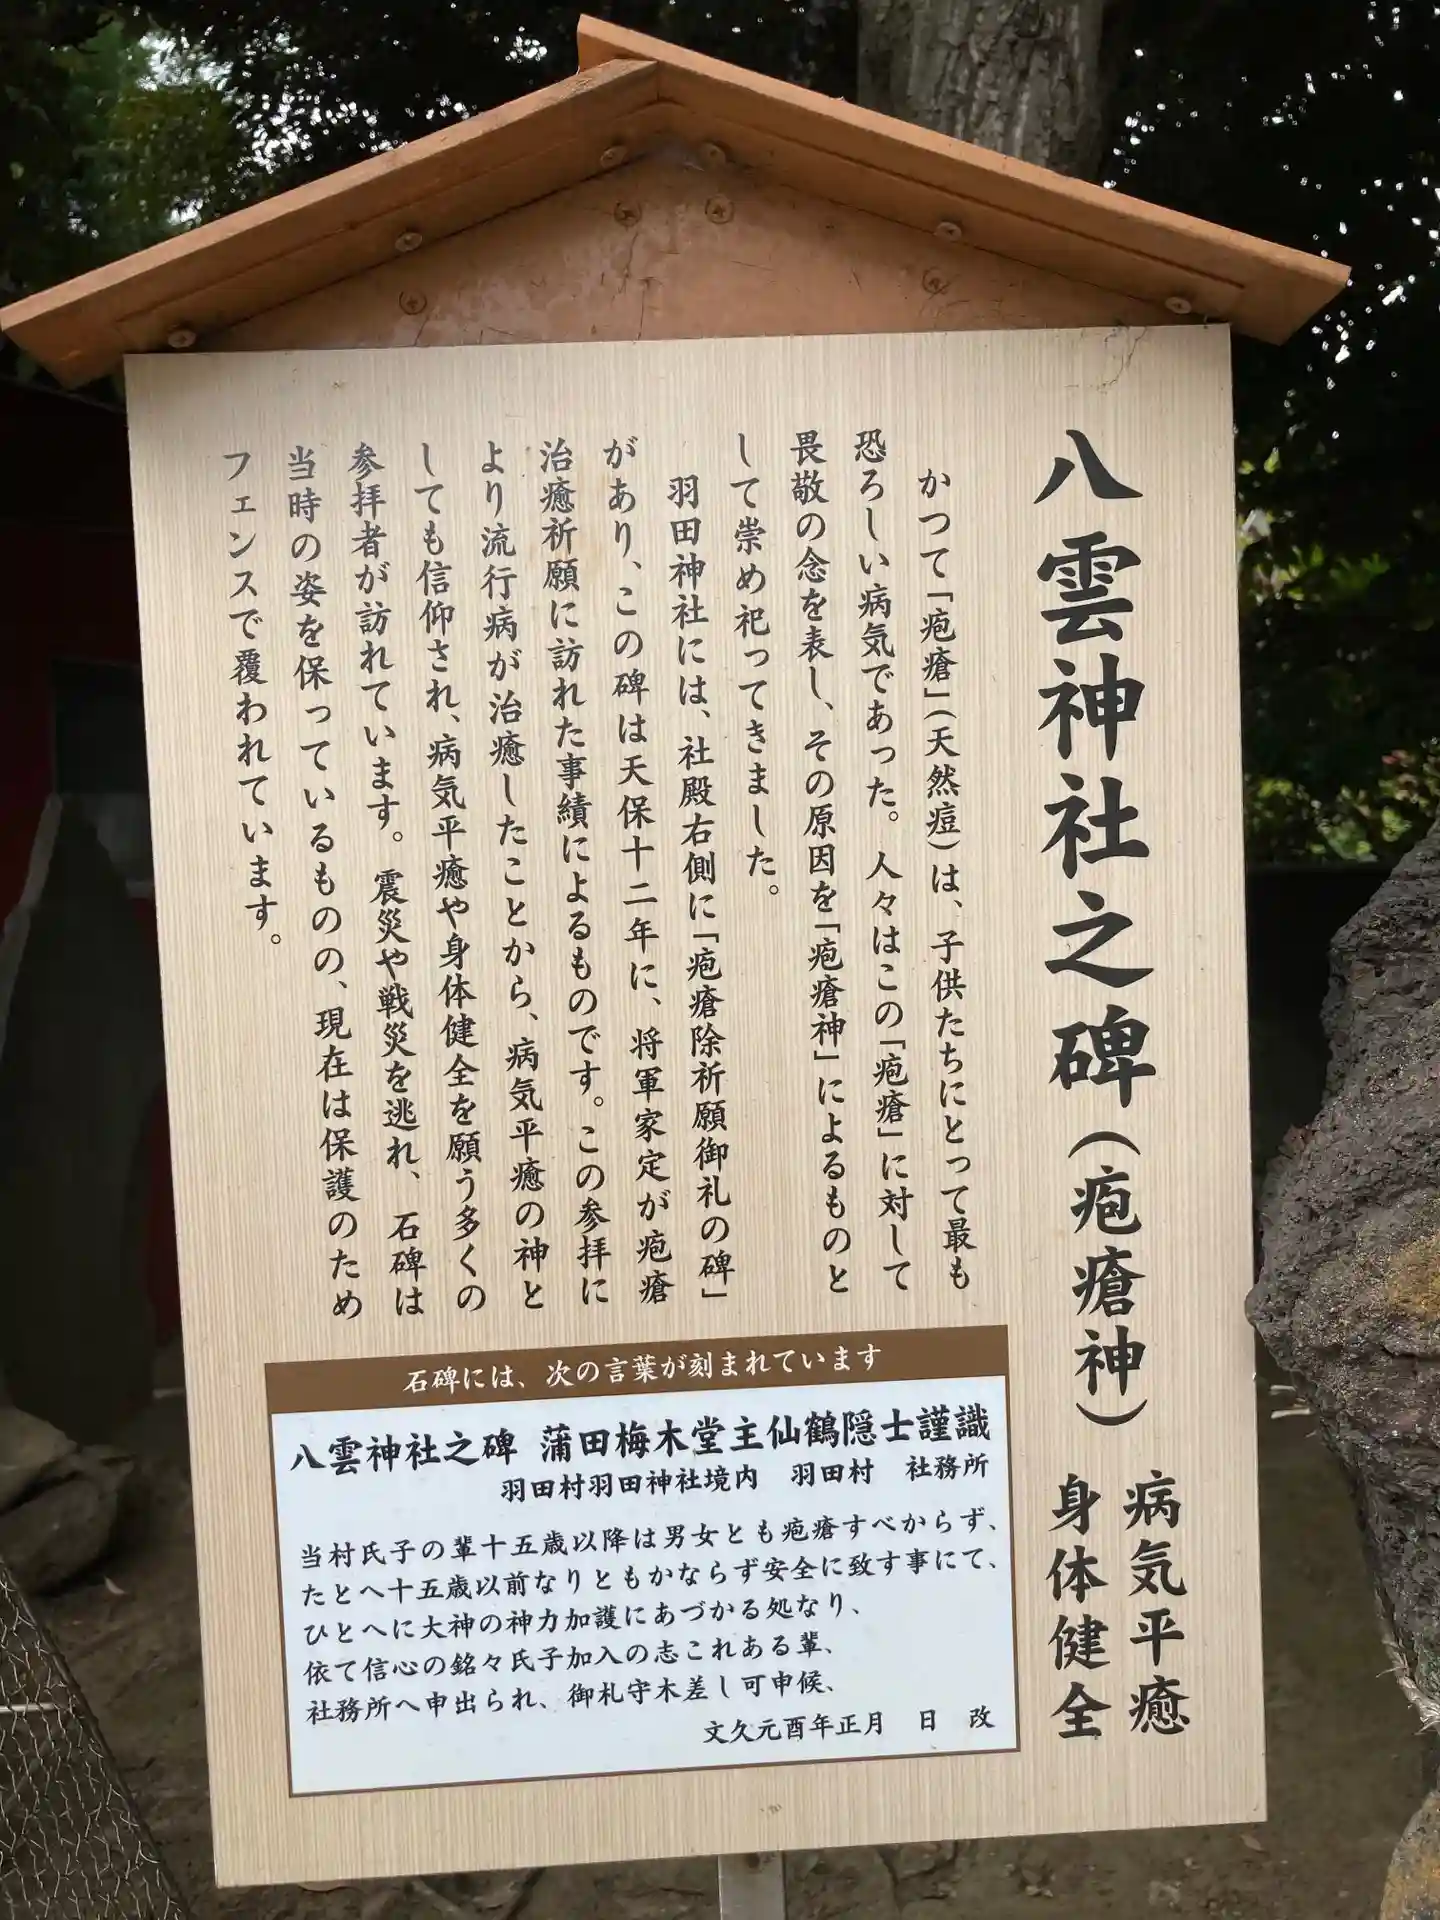 八雲神社之碑(疱瘡神)
病気平癒
身体健全
かつて「疱瘡」(天然痘)は、子供たちにとって最も
恐ろしい病気であった。人々はこの「疱瘡」に対して
畏敬の念を表し、その原因を「疱瘡神」によるものと
して崇め祀ってきました。
羽田神社には、社殿右側に「疱瘡除祈願御礼の碑」
があり、この碑は天保十二年に、将軍家定が疱瘡
治癒祈願に訪れた事績によるものです。この参拝に
より流行病が治癒したことから、病気平癒の神と
しても信仰され、病気平癒や身体健全を願う多くの
参拝者が訪れています。震災や戦災を逃れ、石碑は
当時の姿を保っているものの、現在は保護のため
フェンスで覆われています。
石碑には、次の言葉が刻まれています
八雲神社之碑 蒲田梅木堂主仙鶴隠士謹識
羽田村羽田神社境内 羽田村 社務所
当村氏子の輩十五歳以降は男女とも疱瘡すべからず、
たとへ十五歳以前なりともかならず安全に致す事にて、
ひとへに大神の神力加護にあづかる処なり、
依て信心の銘々氏子加入の志これある輩、
社務所へ申出られ、御札守木差し可申候、
文久元酉年正月 日 改